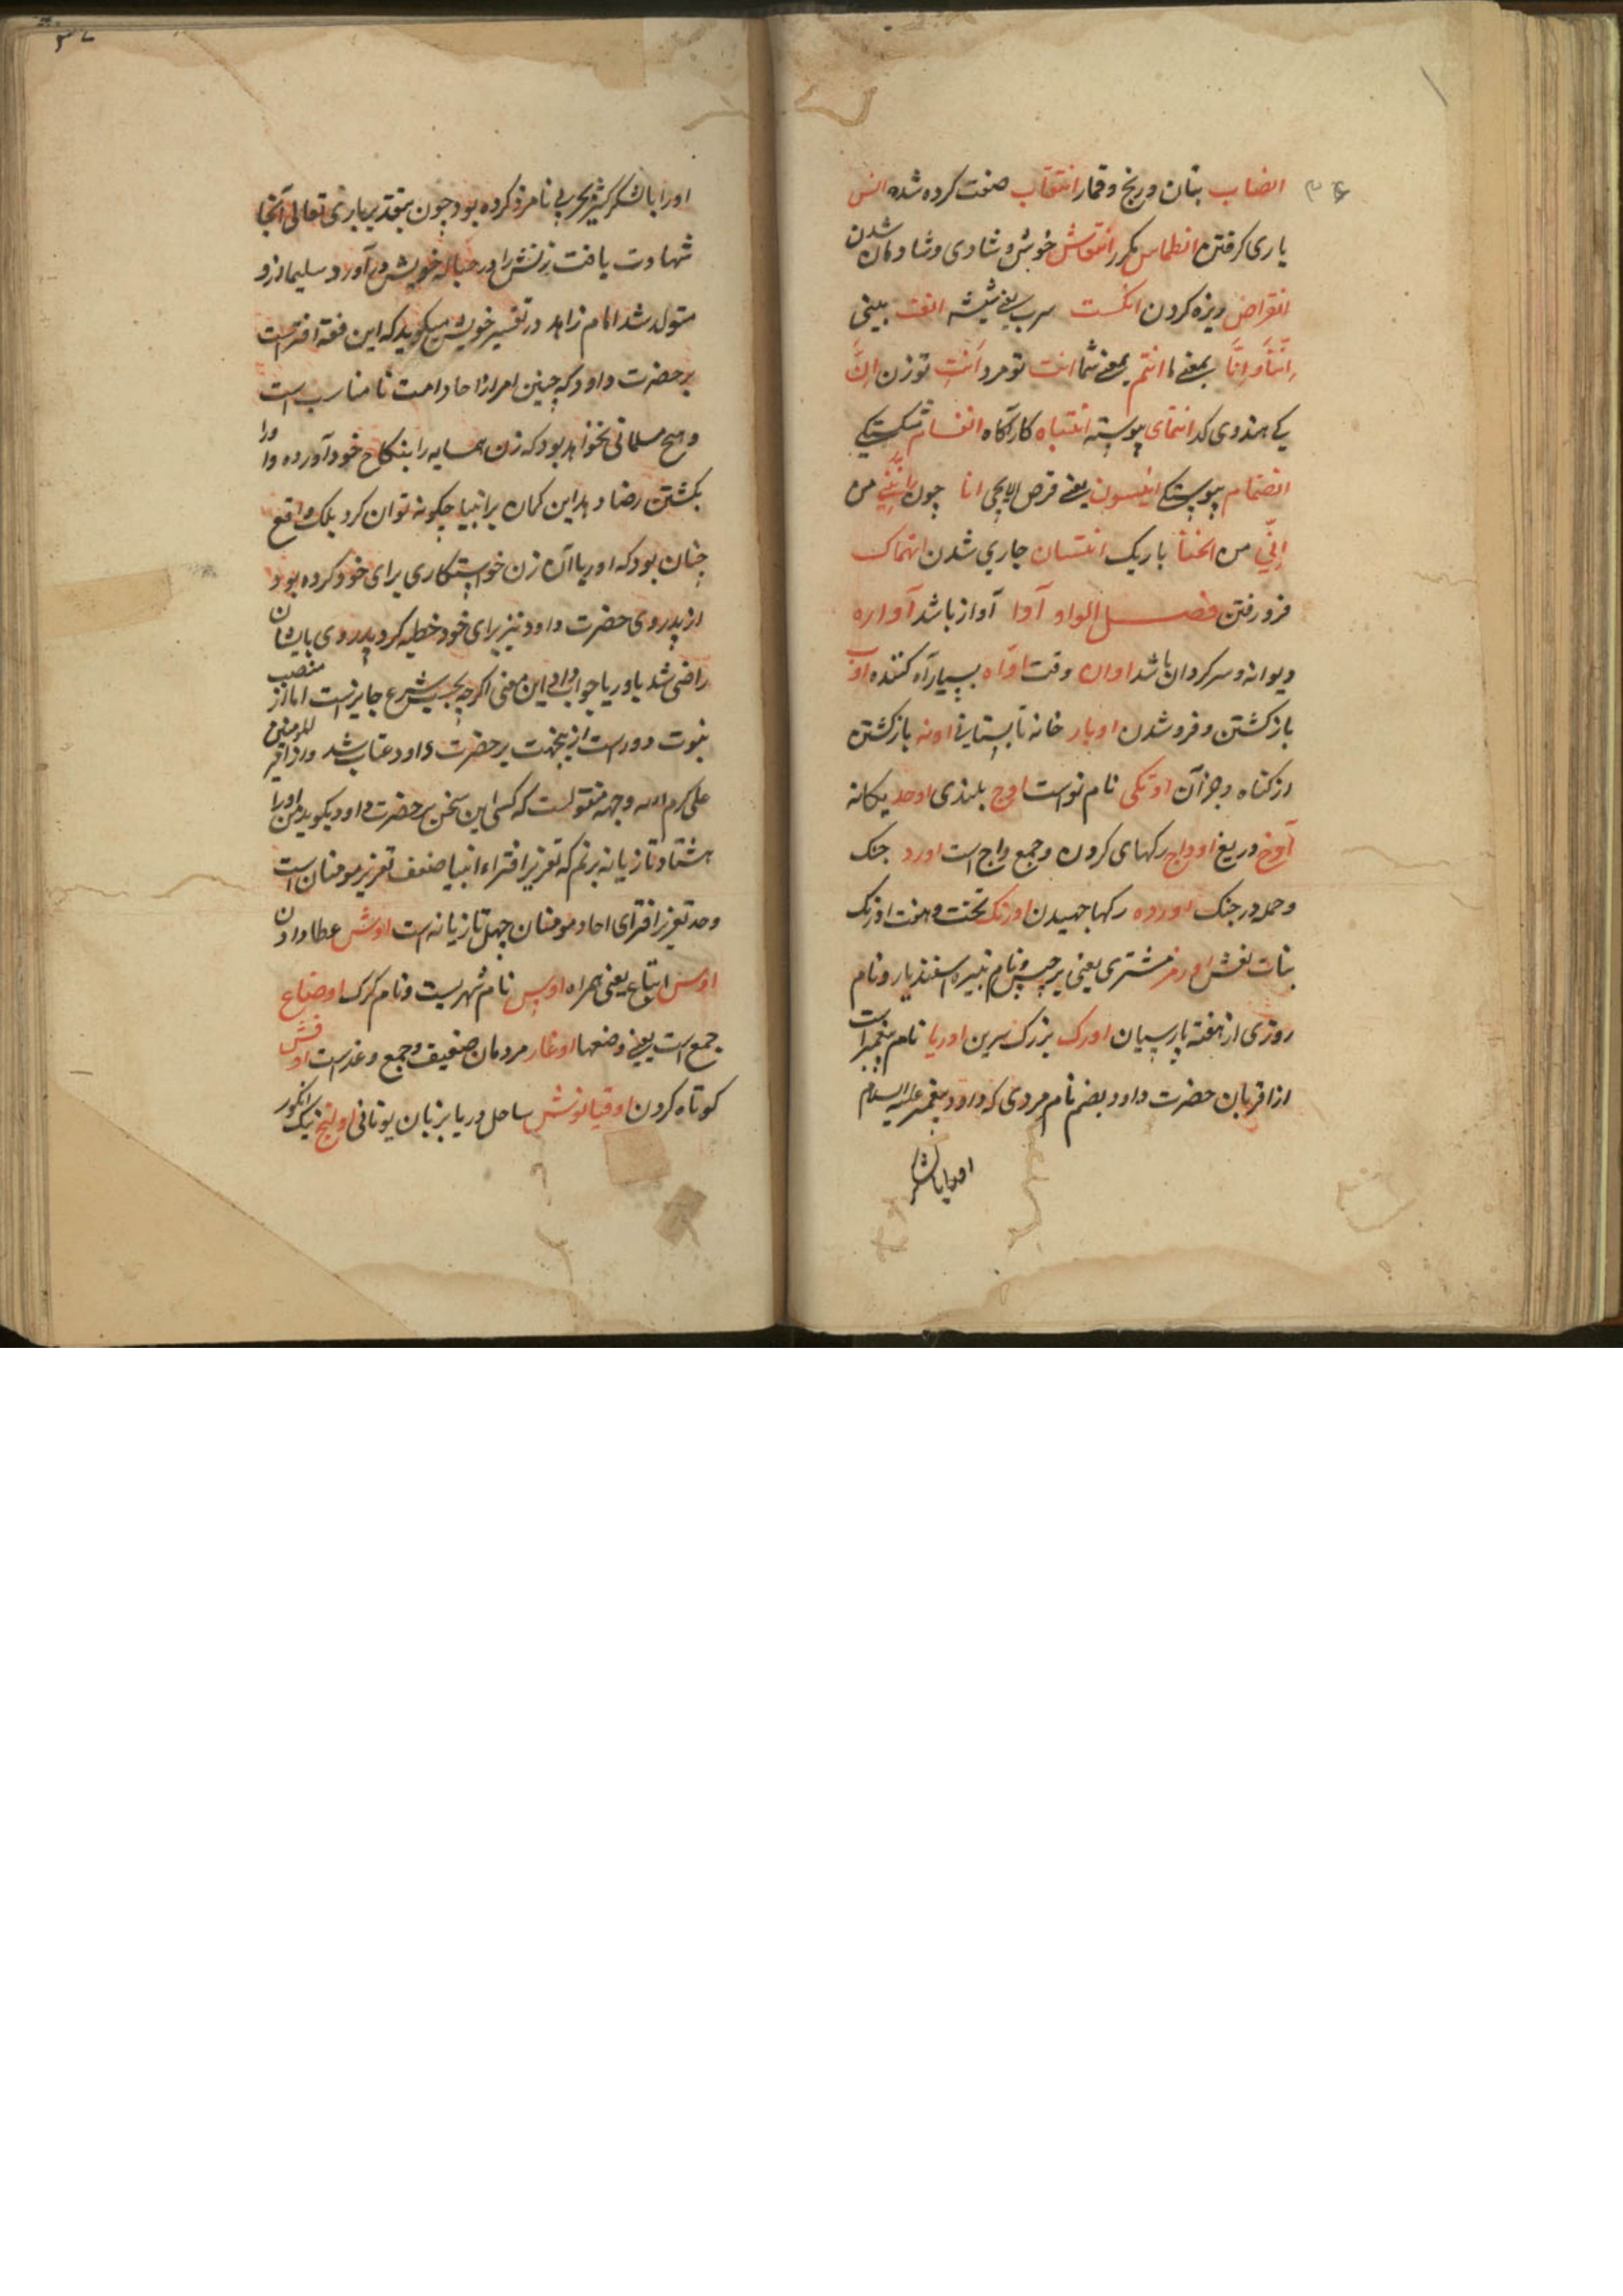 انصاب بتان و رنج و قمار انتقاب صفت کرده شده انس
یاری گرفتن انطماس مکرر انتقاش خوش و شادی و شادمان شدن
انقراض ریزه کردن انکست سرب یعنی شیشه انف بینی
اِنَّنَا وَ اِنَّا بمعنی ما انتم بمعنی شما انت تو مرد اَنْتِ تو زن اِنَّ
یکی هندوی کد انتمای پیوسته انتباه کار آگاه انفسام شکستگی
انضمام پیوستگی انیسون یعنی قرص الایچی انا چون اِنَّنِی من
اِنّی من باریک جاری شدن انهماک
فرو رفتن فصل الواو آوا آواز باشد آواره
دیوانه و سرکردان باشد اوان وقت اوّاه بسیار آه کننده اوب
بازکشتن و فروشدن اوبار خانه تابستانی اوبه بازکشتن
از کناه و جز آن اوتکی نام نواست اوج بلندی اوحد یکانه
آوخ دریغ اوداج رکهای کردن و جمع واج است اورد جنک
و حمله در جنک اورده رکها جهیدن اورنک تخت و هفت اورنک
بنات نعش اورمز مشتری یعنی برجیس و نام نبیره اسفندیار و نام
روزی از هفته پارسیان اورک بزرک سرین اوریا نام پیغمبر است
از اقربان حضرت داود بضم نام مردی که داود پیغمبر علیه السلام
اورا بالشکر
اورا بالشکر کثیر بحربی نامزد کرده بود چون بتقدیر باری تعالی آنجا
شهادت یافت زنش را در حباله خویش در آورد سلیمان ازو
متولد شد امام زاهد در تفسیر خویش میکوید که این قصه افتراست
بر حضرت داود که چنین امر از احاد امت نا مناسب است
و هیچ مسلمانی نخواهد بود که زن همسایه را بنکاح خود آورده و او را
بکشتن رضا دهد این کمان بر انبیا چکونه توان کرد بلک واقع
چنان بود که اوریا آن زن خواستکاری برای خود کرده بود
از پدر وی حضرت داود نیز برای خود خطبه کرد پدر وی بایشان
راضی شد باوریا جواب داد این معنی اکرچه بحسب شرع جایز است اما از منصب
نبوت دور است ازینجهت بر حضرت داود عتاب شد و از امیر المومنین
علی کرم الله وجهه منقولست که کسی این سخن بر حضرت داود بکوید من او را
هشتاد تازیانه بزنم که تعزیر افتراء انبیا ضعف تعزیر مومنان است
و حد تعزیر افترای احاد مومنان چهل تازیانه است اوش عطا دادن
اوس اتباع یعنی همراه اویس نام شهریست و نام کرک اوضاع
جمع است یعنی وضعها اوغار مردمان ضعیف و جمع وغد است اوفش
کوتاه کردن اوقیانوش ساحل دریا بزبان یونانی اولنج نیک انکور